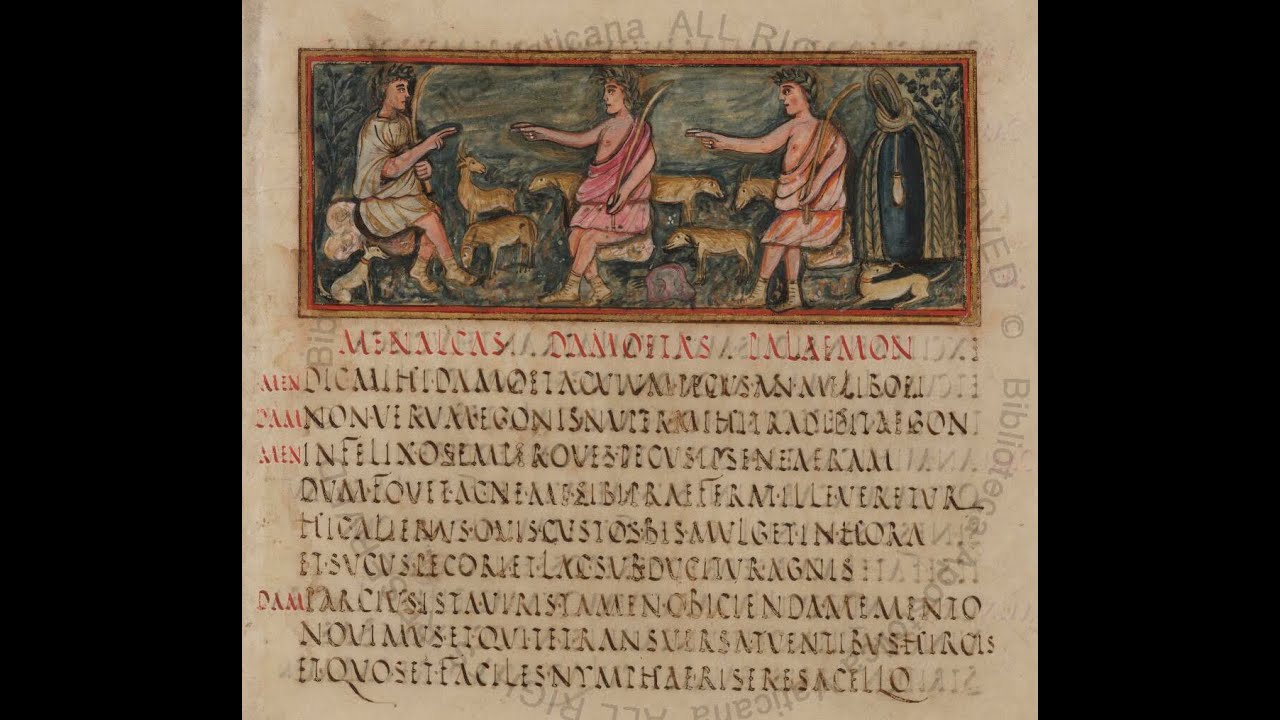 MENALCAS DAMOETAS PALAEMON
MEN DIC·MIHI·DAMOETA·CVIVM·PECVS·AN·MELIBOEI
DAM NON·VERVM·EGONIS·NVPER·MIHI·TRADIDIT·AEGON
MEN INFELIX·O·SEMPER·OVES·PECVS·IPSE·NEAERAM
DVM·FOVET·AC·NE·ME·SIBI·PRAEFERAT·ILLE·VERETVR
HIC·ALIENVS·OVIS·CVSTOS·BIS·MVLGET·IN·HORA
ET·SVCVS·PECORI·ET·LAC·SVBDVCITVR·AGNIS
DAM PARCIVS·ISTA·VIRIS·TAMEN·OBICIENDA·MEMENTO
NOVIMVS·ET·QVI·TE·TRANSVERSA·TVENTIBVS·HIRCIS
ET·QVO·SET·FACILES·NYMPHAE·RISERE·SACELLO
Vaticana ALL
© Biblioteca
Vaticana ALL